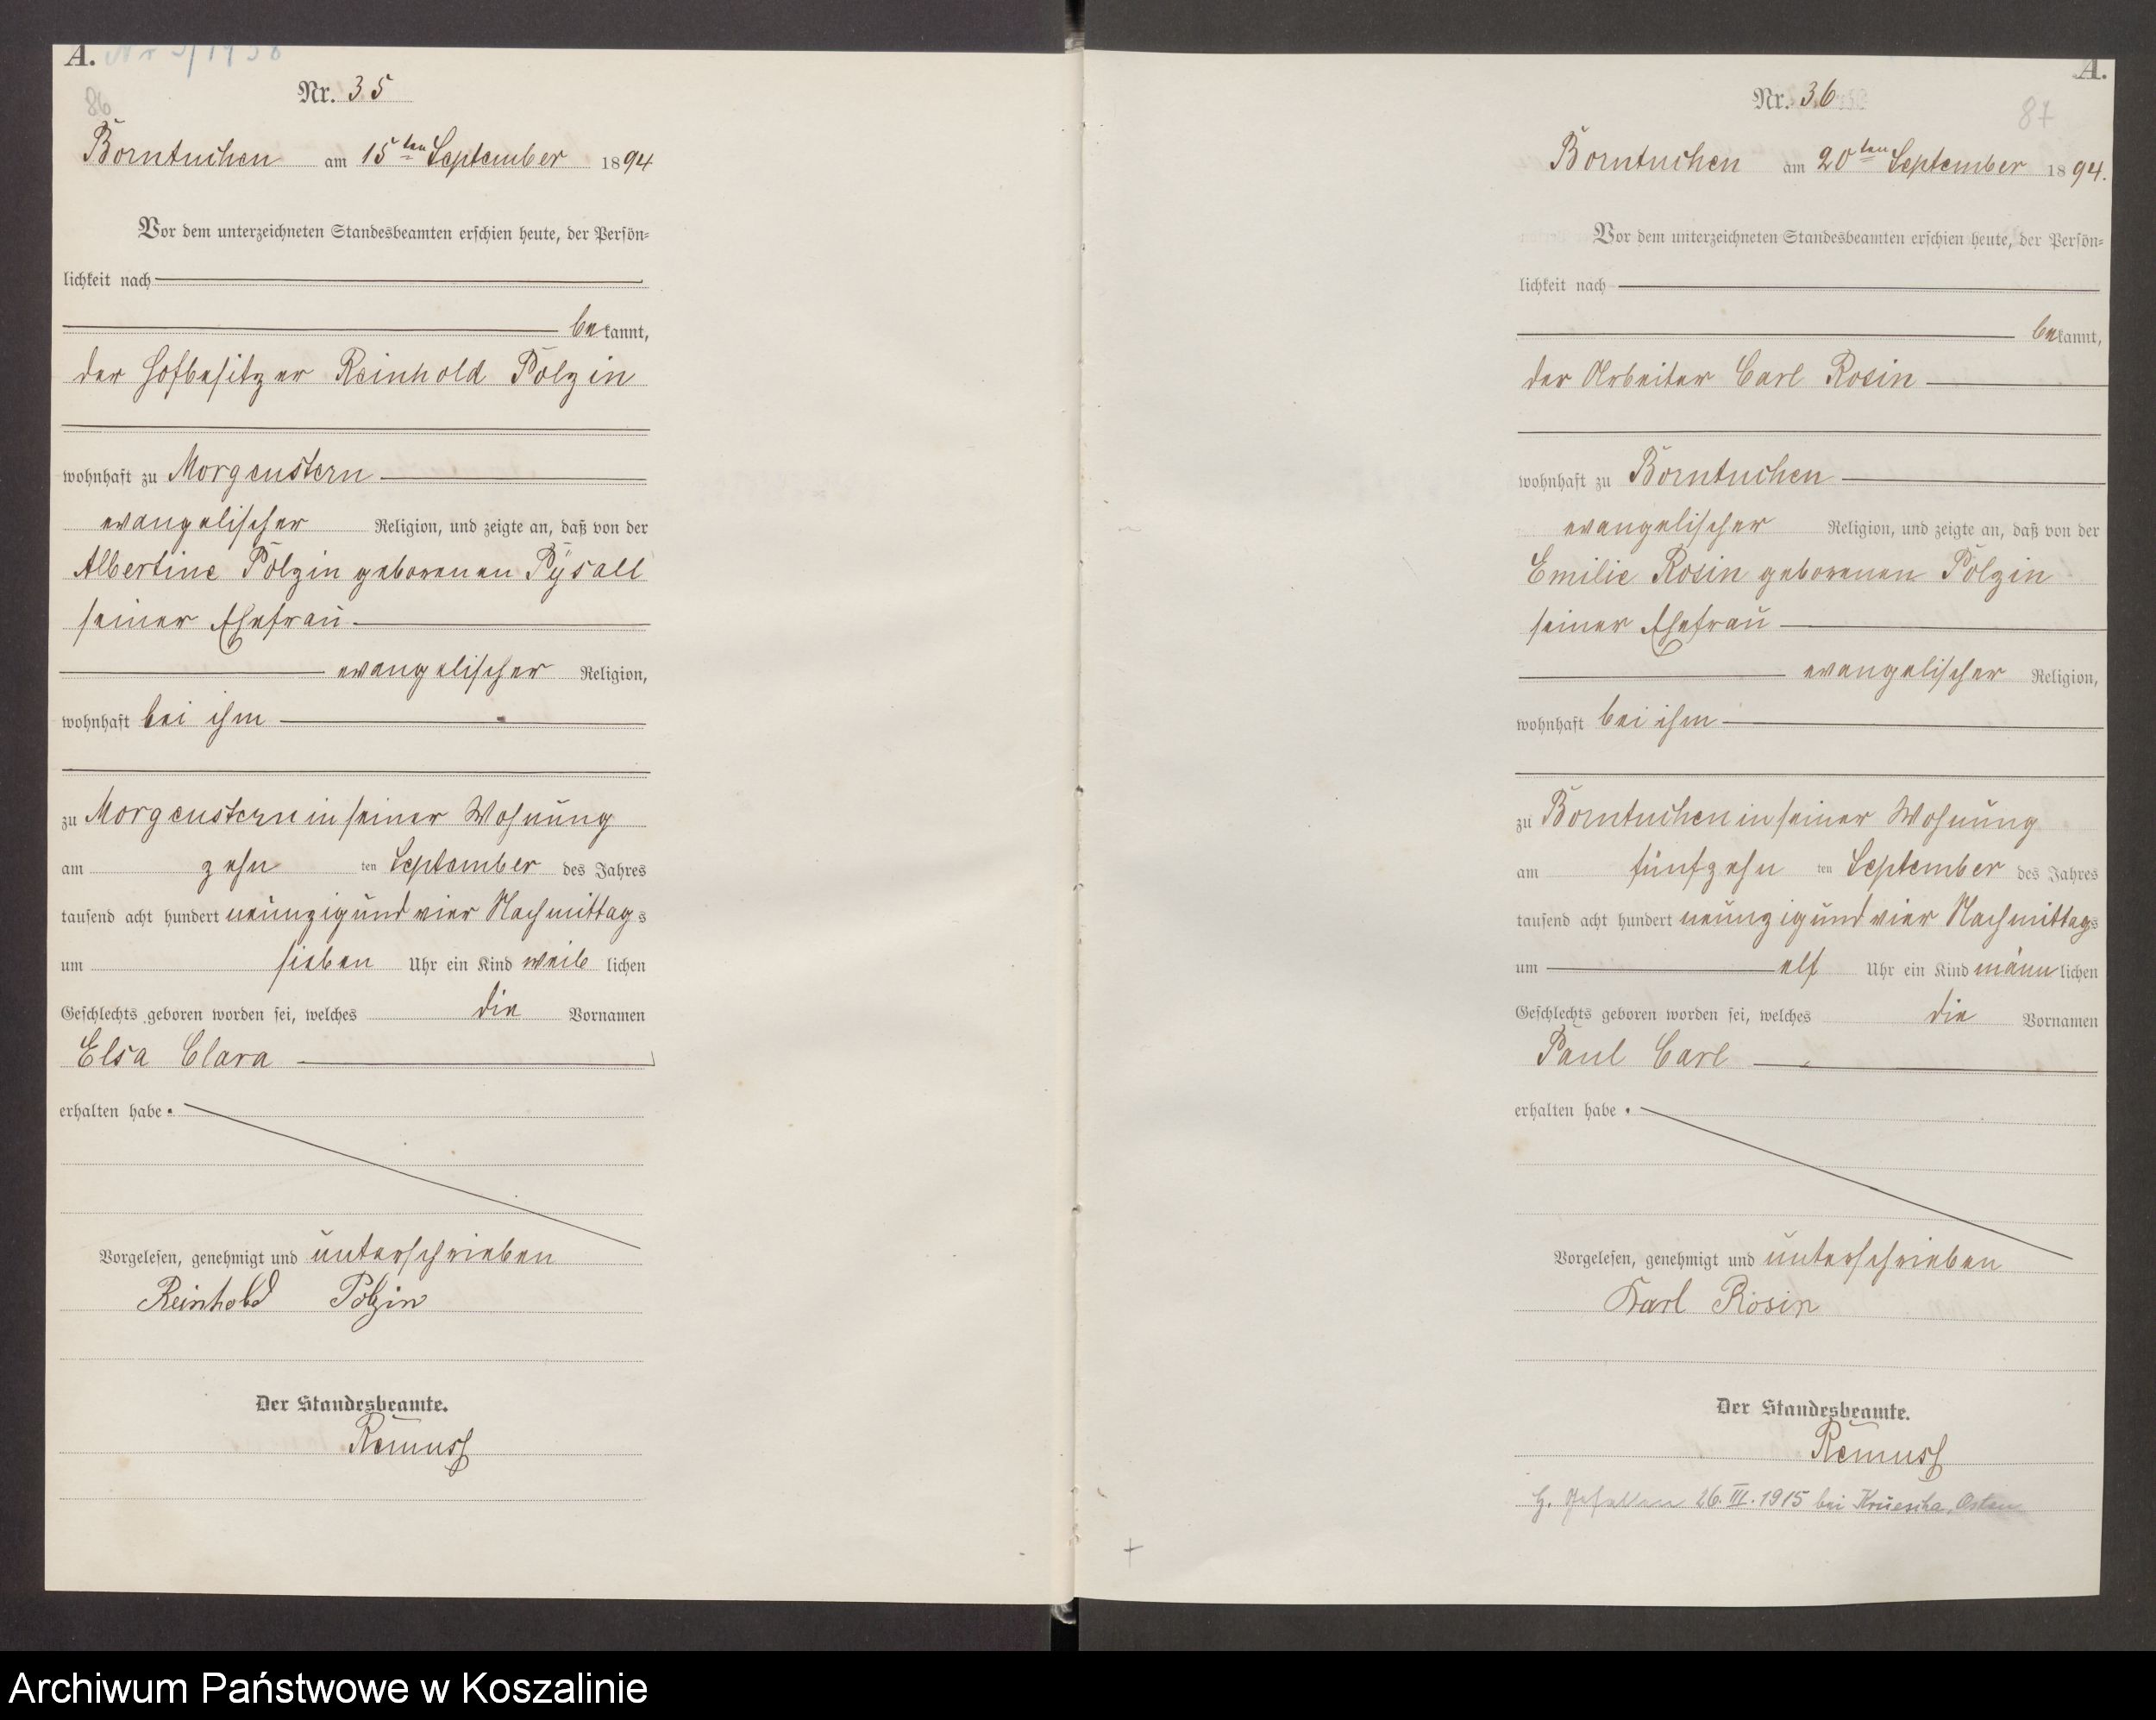 A. Nr 3/1938
86
Nr. 35
Borntuchen am 15ten September 1894
Vor dem unterzeichneten Standesbeamten erschien heute, der Persön-
lichkeit nach
bekannt,
der Hofbesitzer Reinhold Polzin
wohnhaft zu Morgenstern
evangelischer Religion, und zeigte an, daß von der
Albertine Polzin geborenen Pysall
seiner Ehefrau
evangelischer Religion,
wohnhaft bei ihm
zu Morgenstern in seiner Wohnung
am zehn ten September des Jahres
tausend acht hundert neunzig und vier Nachmittags
um sieben Uhr ein Kind weiblichen
Geschlechts geboren worden sei, welches die Vornamen
Elsa Clara
erhalten habe.
Vorgelesen, genehmigt und unterschrieben
Reinhold Polzin
Der Standesbeamte.
Remuss
A.
87
Nr. 36
Borntuchen am 20ten September 1894.
Vor dem unterzeichneten Standesbeamten erschien heute, der Persön-
lichkeit nach
bekannt,
der Arbeiter Carl Rosin
wohnhaft zu Borntuchen
evangelischer Religion, und zeigte an, daß von der
Emilie Rosin geborenen Polzin
seiner Ehefrau
evangelischer Religion,
wohnhaft bei ihm
zu Borntuchen in seiner Wohnung
am fünfzehn ten September des Jahres
tausend acht hundert neunzig und vier Nachmittags
um elf Uhr ein Kind männlichen
Geschlechts geboren worden sei, welches die Vornamen
Paul Carl
erhalten habe.
Vorgelesen, genehmigt und unterschrieben
Karl Rosin
Der Standesbeamte.
Remuss
gefallen 26.III.1915 bei Osten
Archiwum Państwowe w Koszalinie